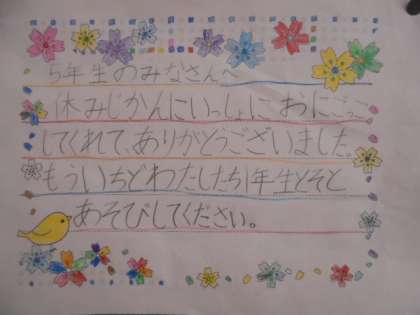 5年生のみなさんへ
休みじかんにいっしょに、おにごっこ
してくれて、ありがとうございました。
もういちどわたしたち1年生とそと
あそびしてください。